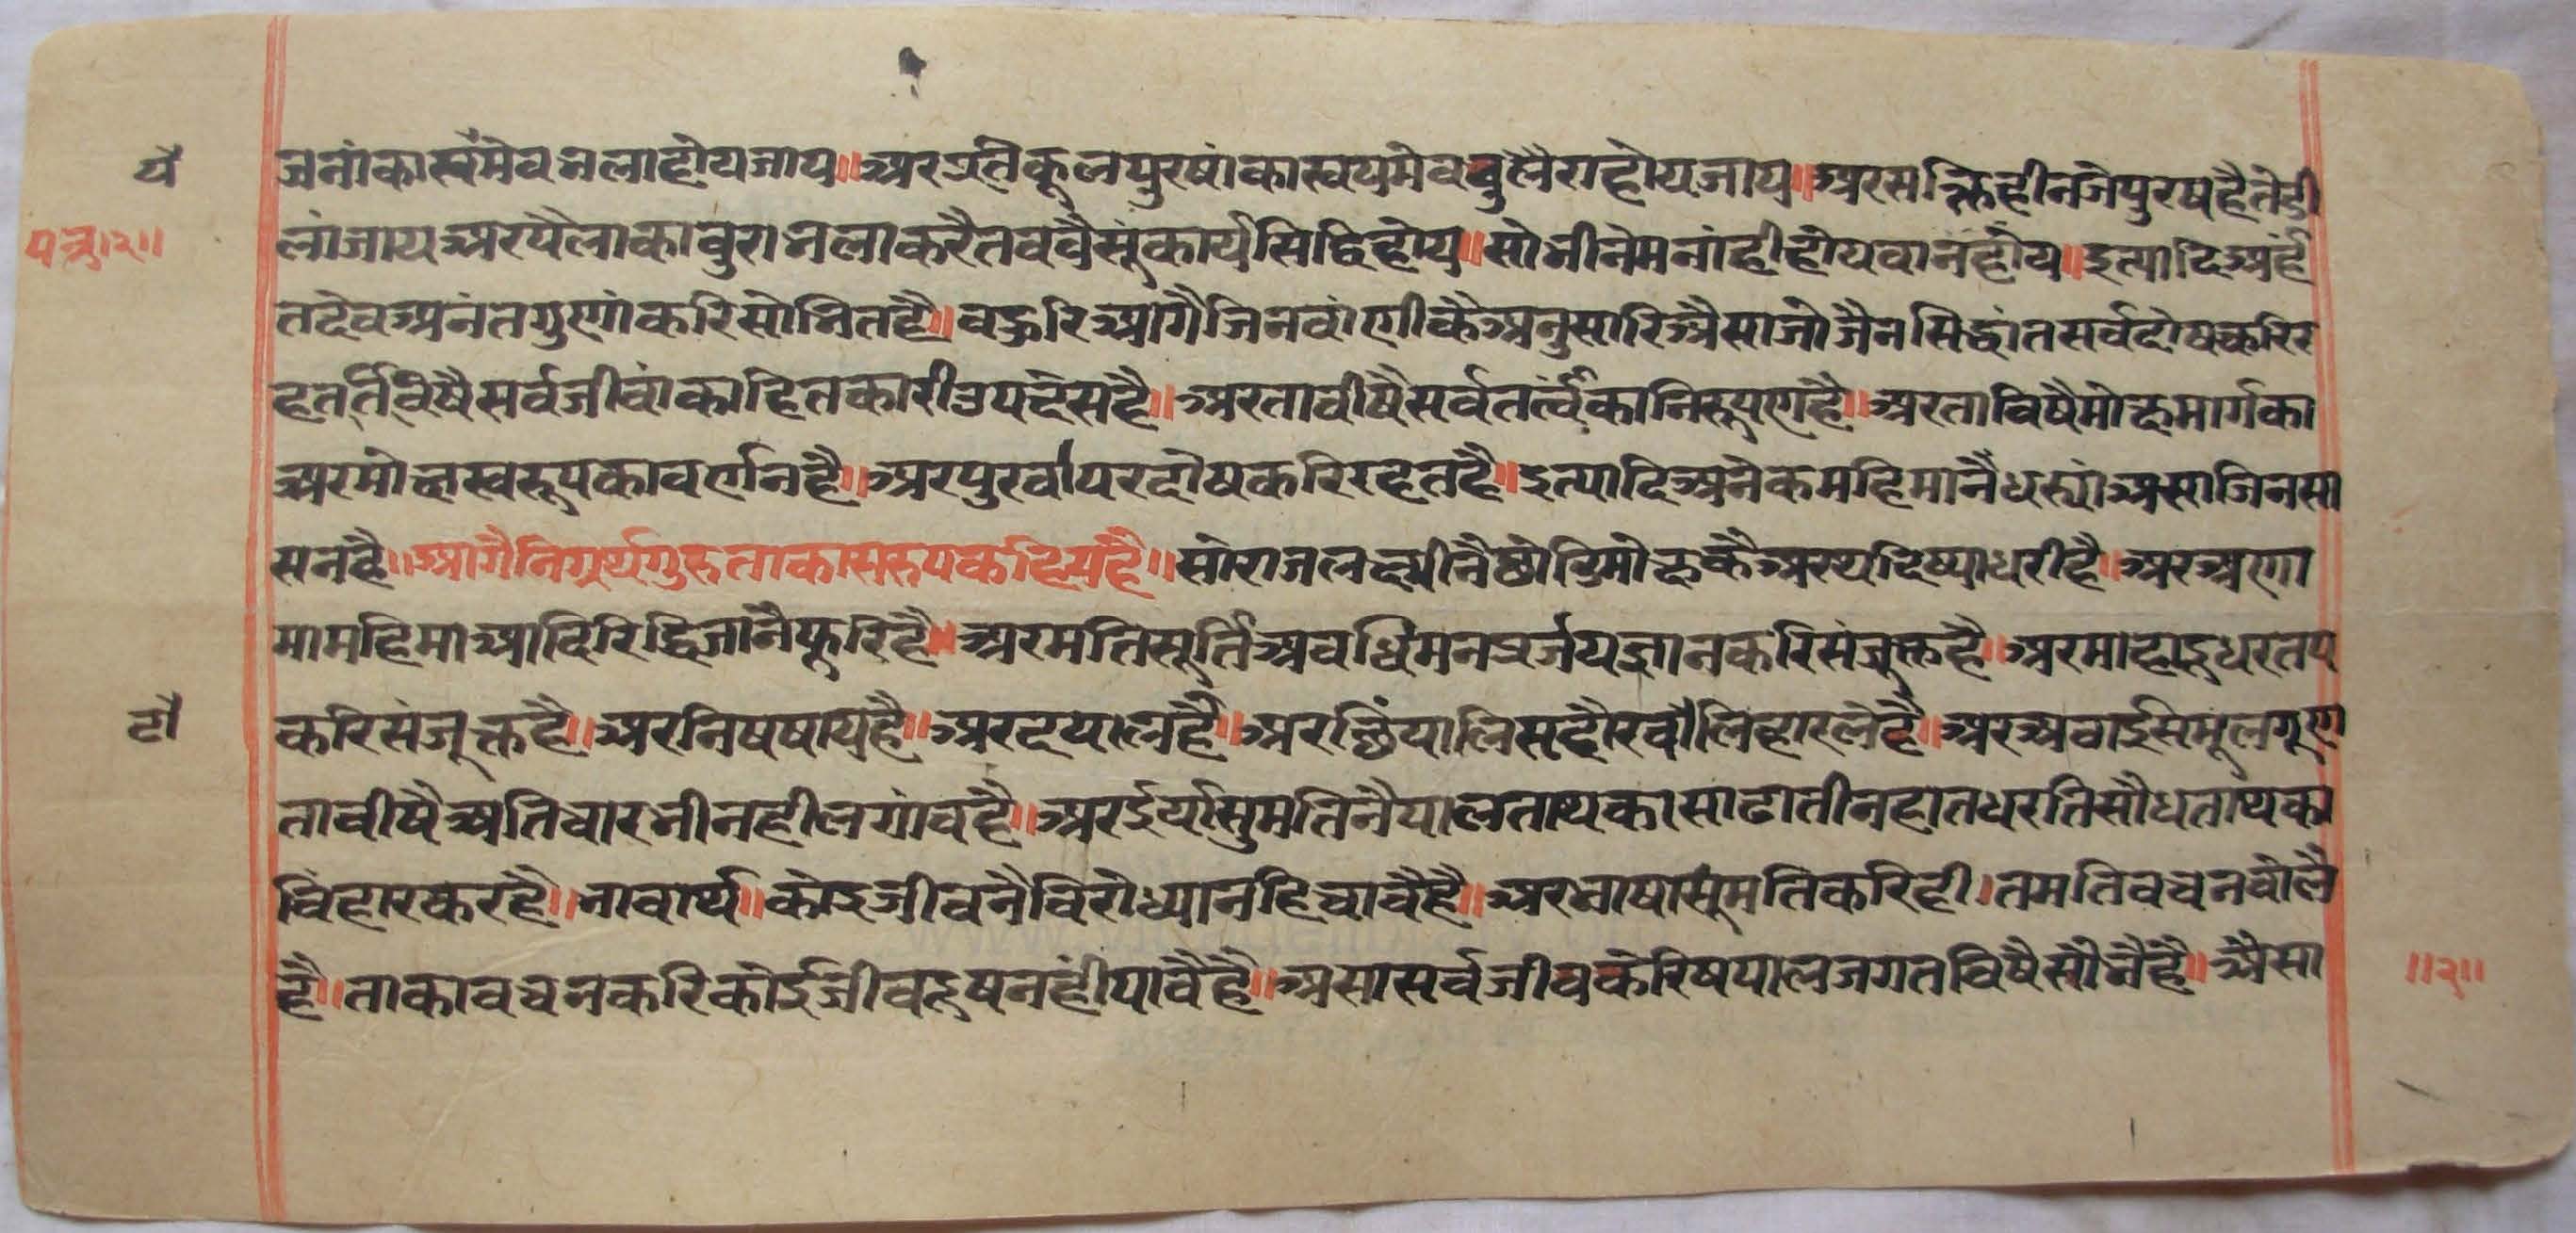 यै
जनांकास्वंमेवभलाहोयजाय॥अरप्रतिकूलपुरषांकास्वयमेवबुलैराहोयजाय॥अरसक्तिहीनजेपुरषहैतेही
पत्रु।२॥
लांजायअरपैलाकाबुराभलाकरैतबवैसुंकार्यसिद्धिहोय॥सोभीनेमनांहीहोयवानहोय॥इत्यादिअर्हं
तदेवअनंतगुणांकरिसोभितहै॥बहुरिआगैजिनवांणीकैअनुसारिअैसाजोजैनसिद्धांतसर्वदोषकरिर
हतविषैसर्वजीवांकाहितकारीउपदेसहै॥अरतावीषैसर्वतत्वंकानिरूपणहै॥अरताविषैमोक्षमार्गका
अरमोक्षस्वरूपकावर्णनहै॥अरपुरवापरदोषकरिरहतहै॥इत्यादिअनेकमहिमानैंधर्‍यांअसाजिनसा
सनहै॥आगैनिग्रंथगुरुताकासरुपकहियहै॥सोराजलक्ष्मीनैछोडिमोक्षकैअरथदिष्याधरीहै॥अरअणा
मामहिमाआदिरिद्धिजानैफूरिहै॥अरमतिसूर्तिअवधिमनप्रर्जयज्ञानकरिसंजुक्तहै॥अरमाहादुधरतप
टौ
करिसंजूक्तहै॥अरनिषषायहै॥अरदयालहै॥अरछियालिसदौरवौलिहारलेहै॥अरअवाईसमूलगूण
तावीषैअतिचारभीनहीलगांवहै॥अरईर्यासुमतिनैपालताथकासाढातीनहातधरतिसौधताथका
विहारकरहै॥भावार्थ॥कोइजीवनैविरोध्यानहिचावैहै॥अरभाषासुंमतिकरिही।तमतिवचनबोलै
है॥ताकावचनकरिकोईजीवदुषनहींपावैहै॥असासर्वजीवकेरिषपालजगतविषैसोभैहै॥अैसा
॥२॥